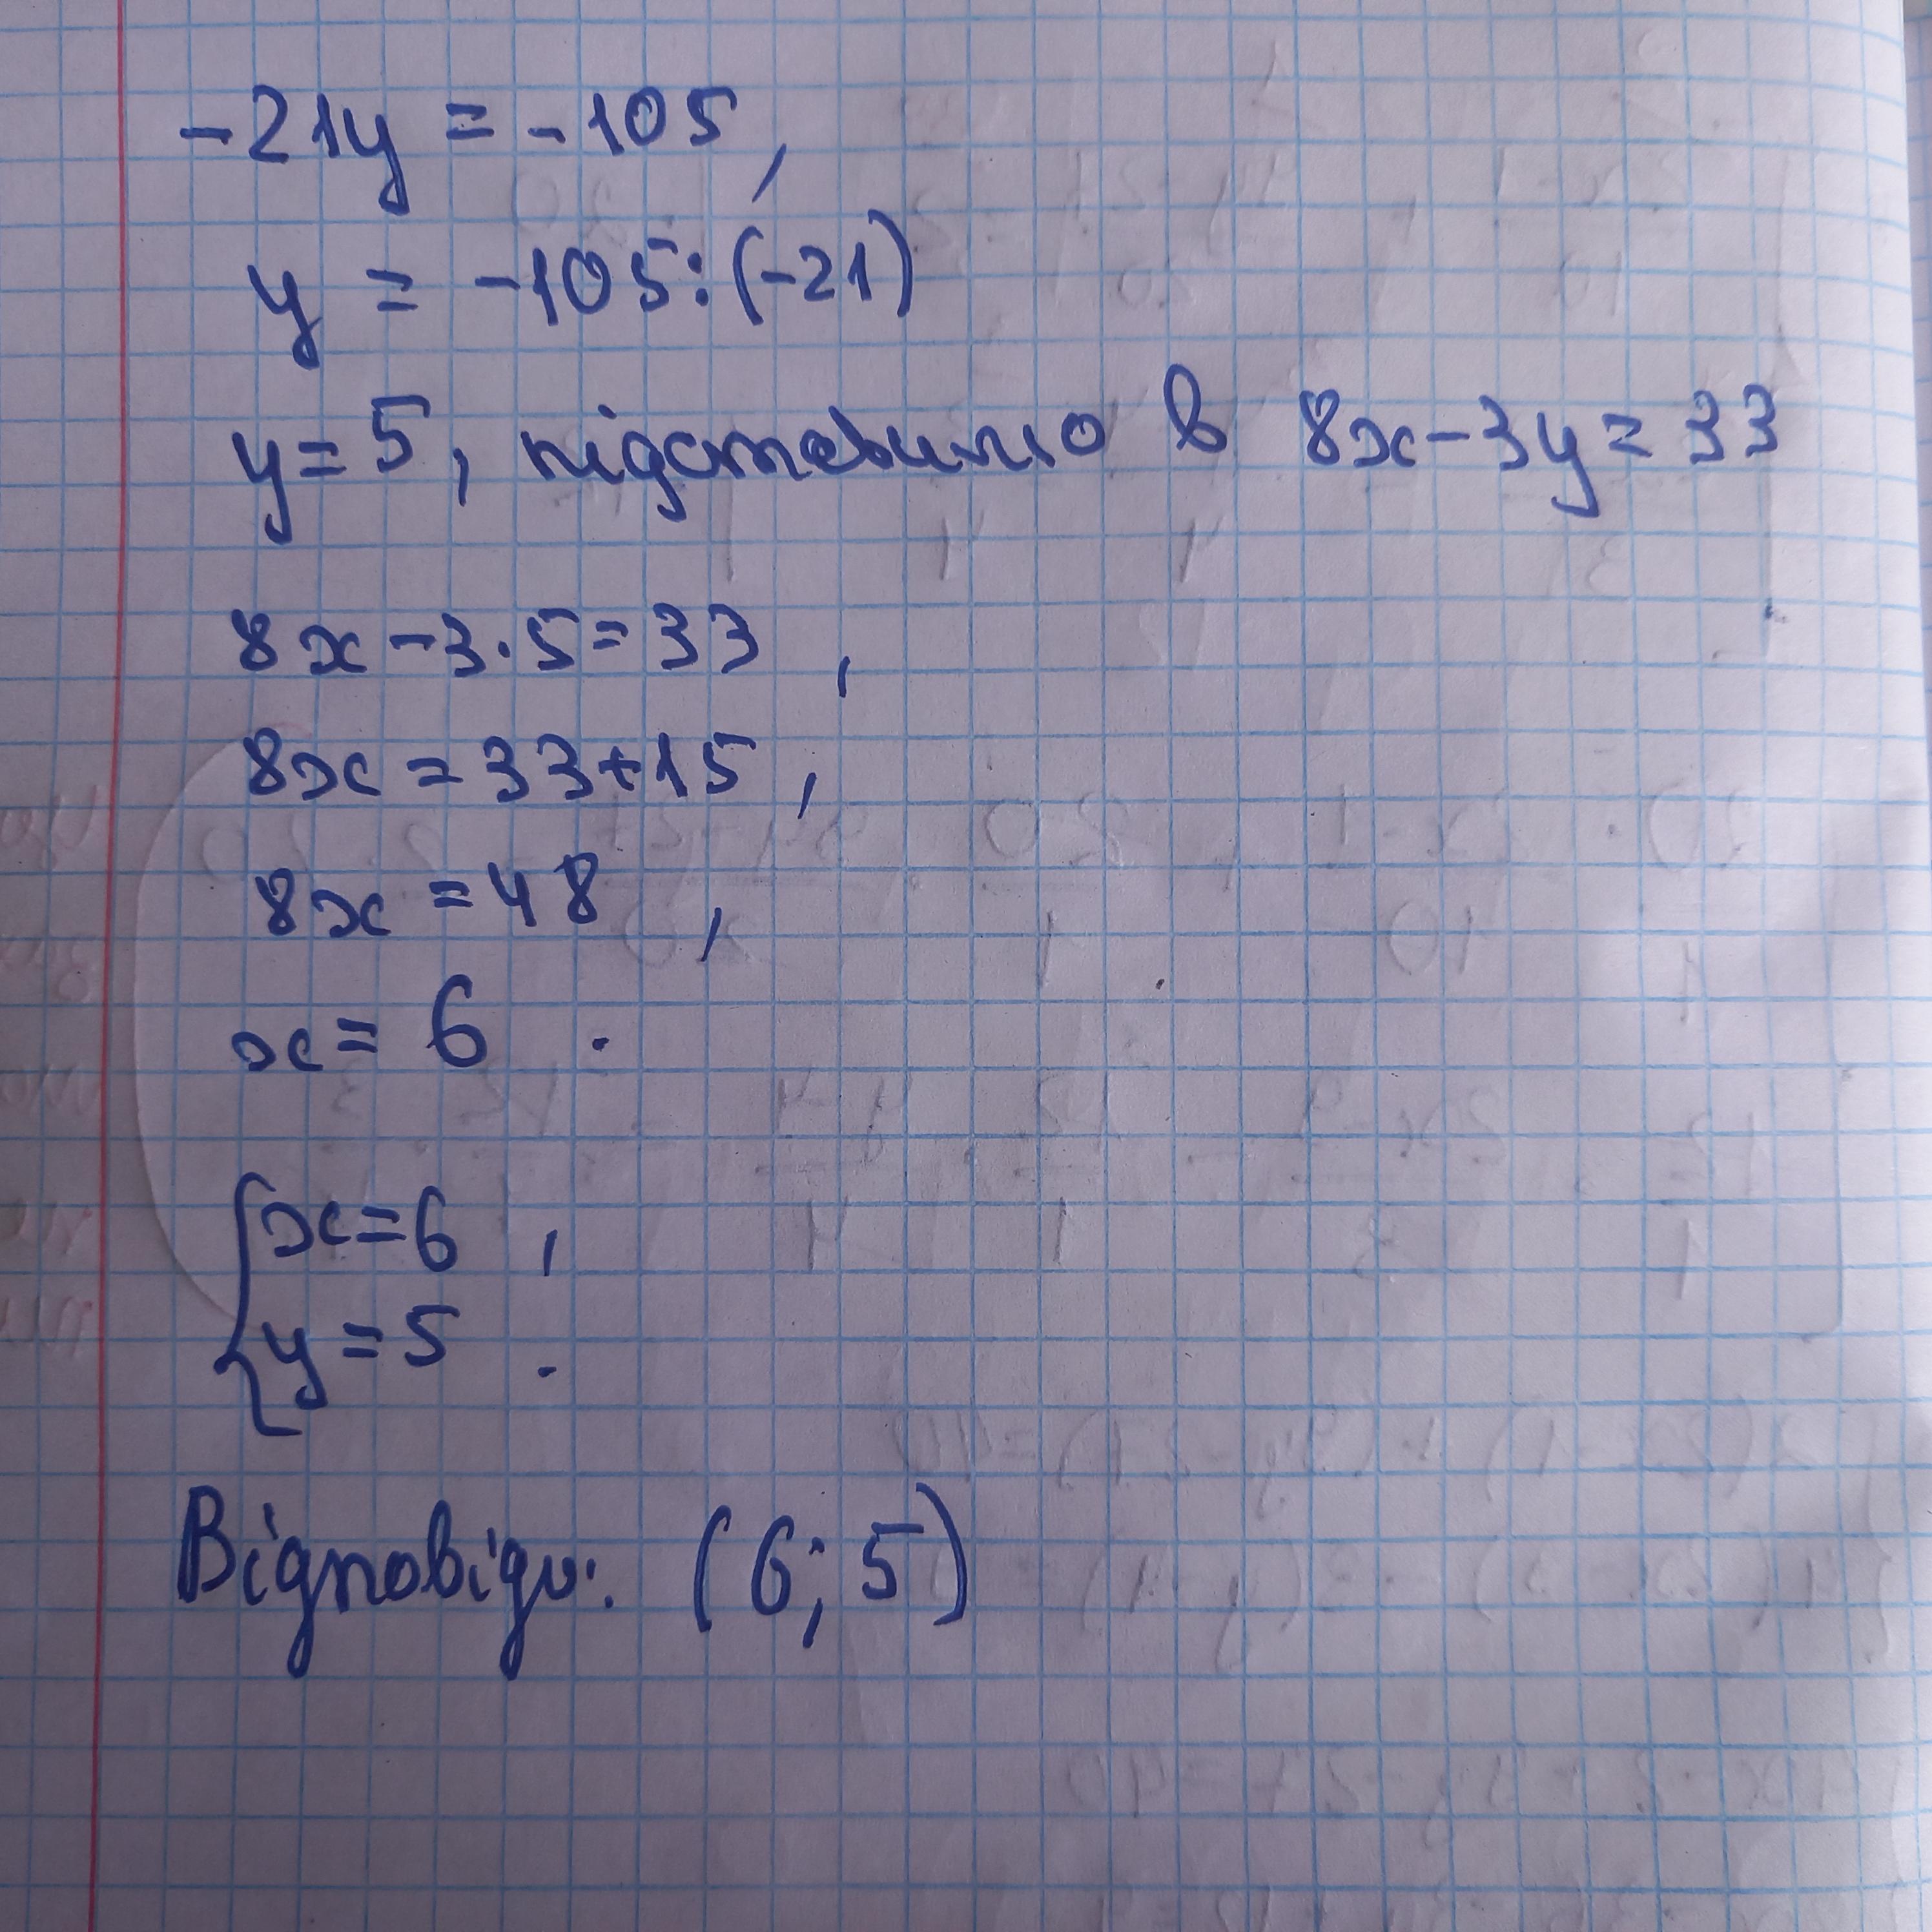 -21y = -105,
y = -105:(-21)
y = 5, підставимо в 8x - 3y = 33
8x - 3·5 = 33,
8x = 33+15,
8x = 48,
x = 6.
{x = 6,
y = 5.
Відповідь: (6; 5)